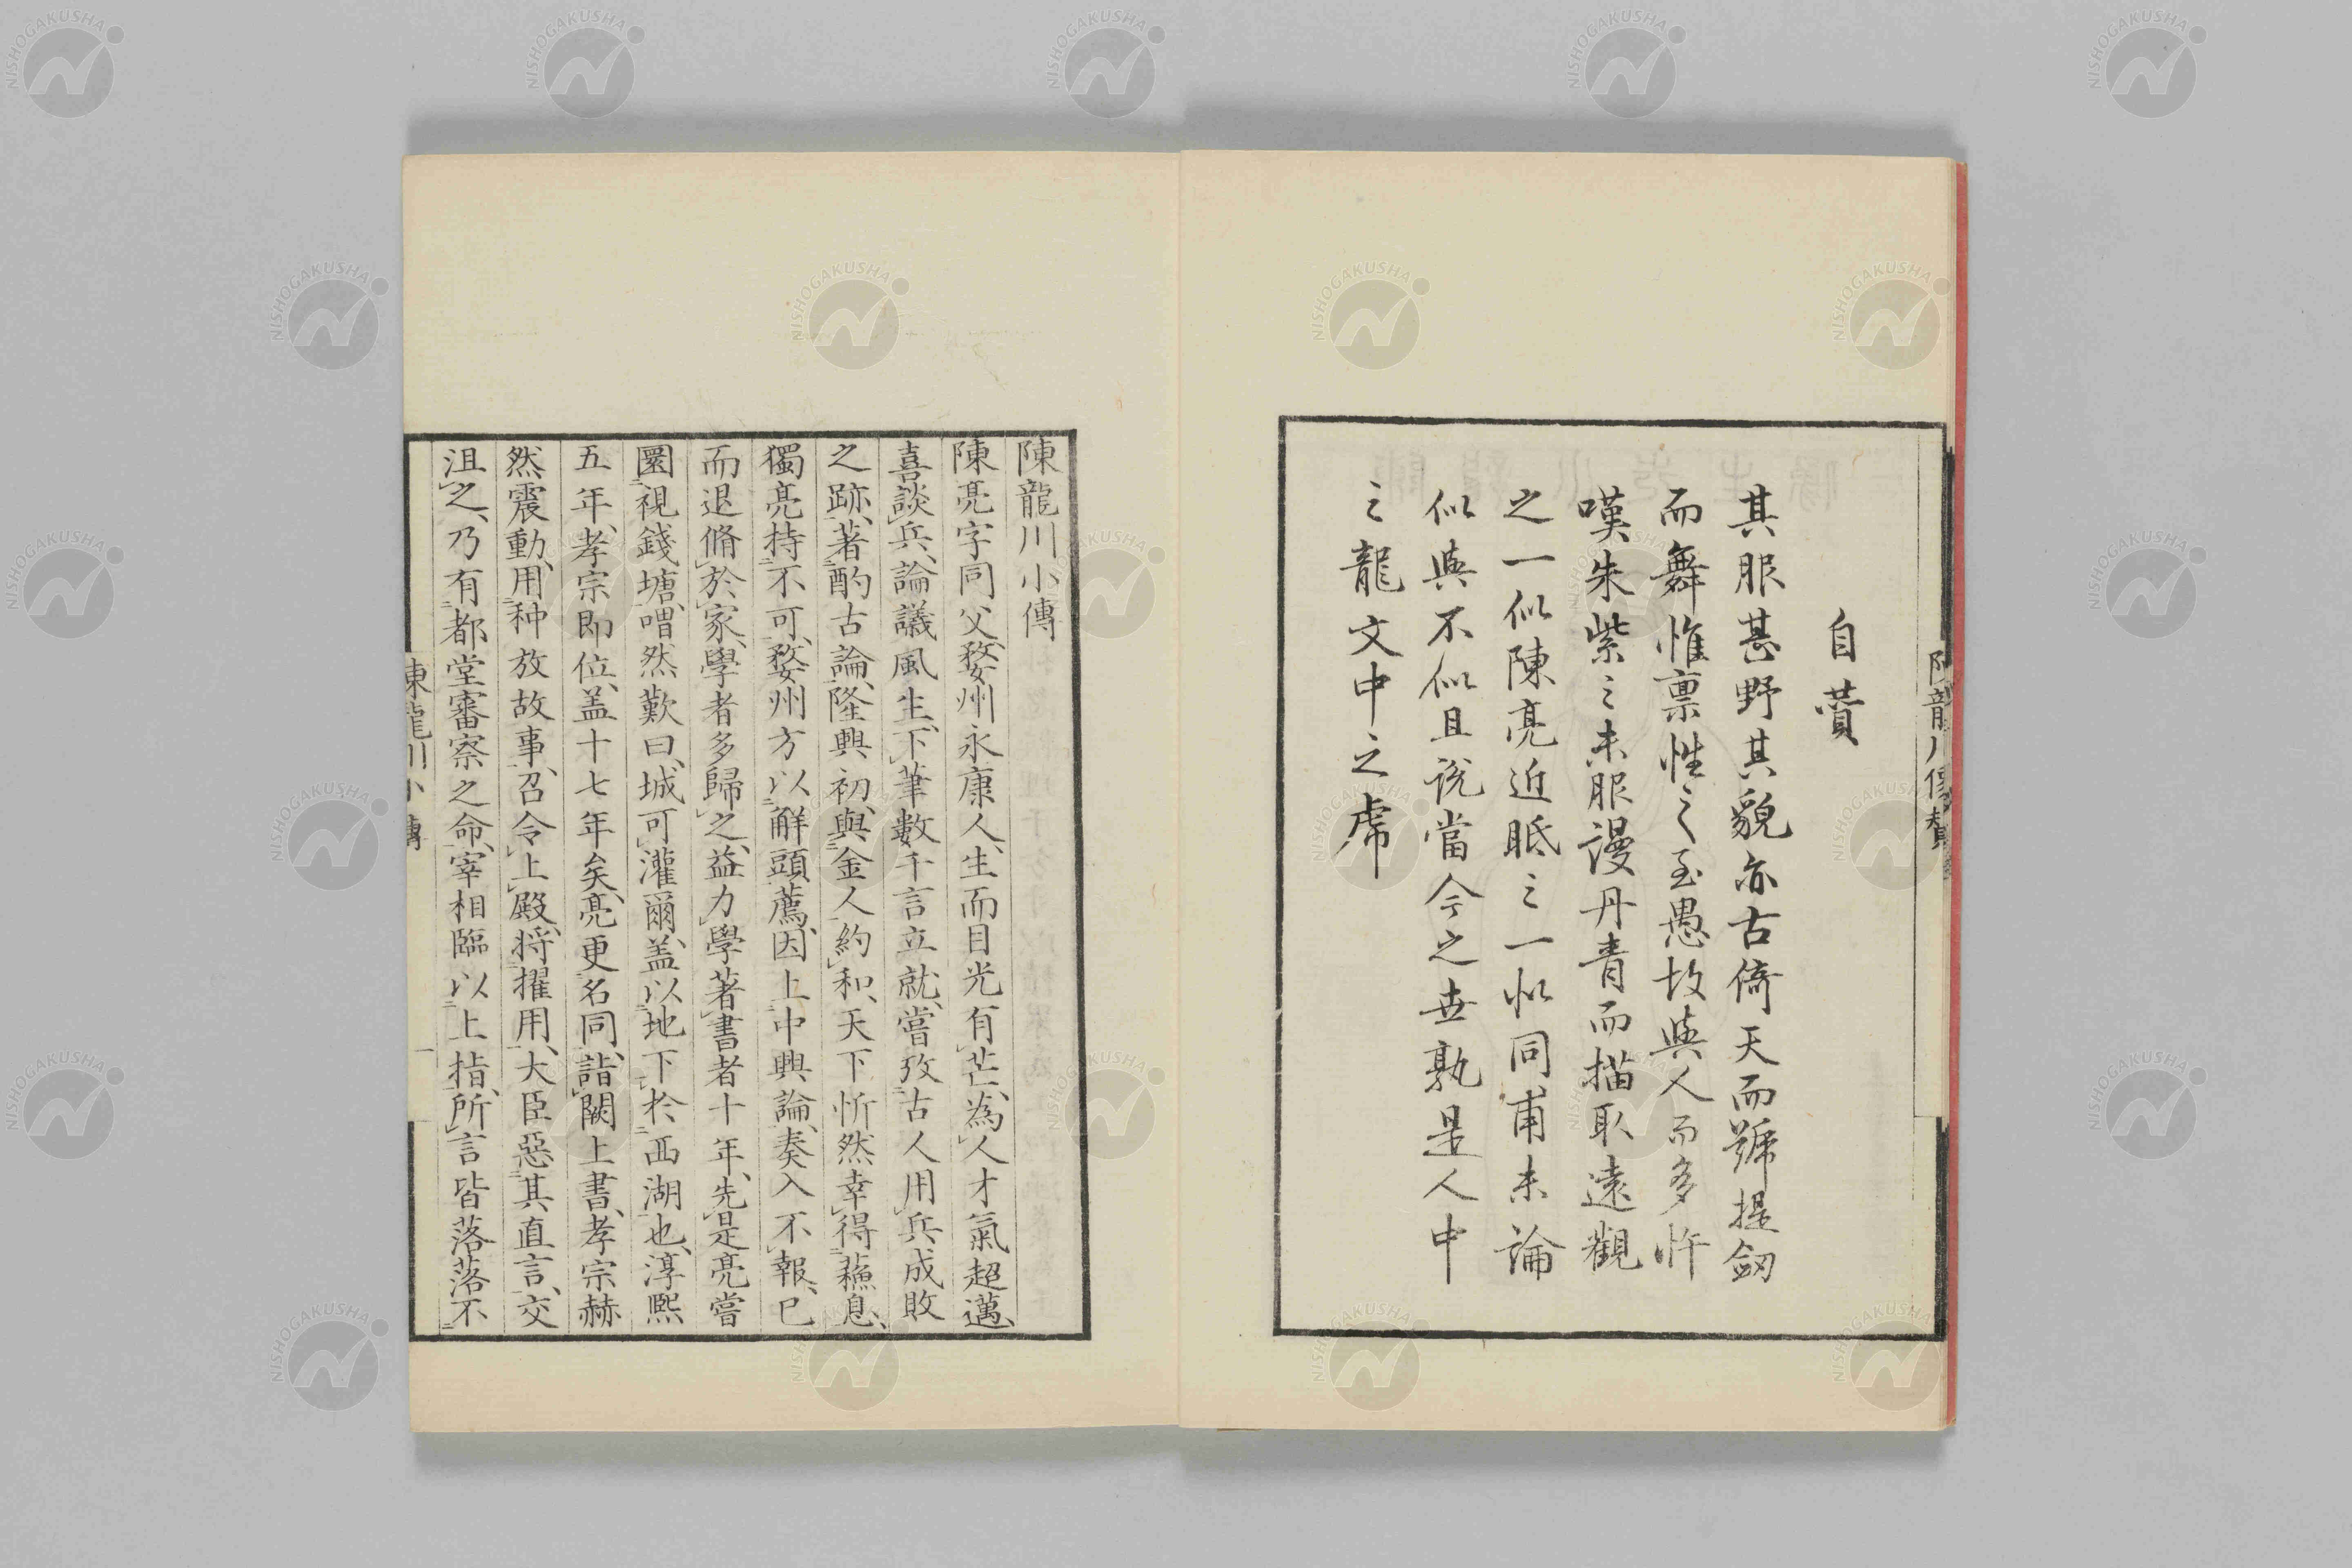 自贊
其服甚野其貌亦古倚天而號提劒
而舞惟禀性之至愚故與人而多忤
嘆朱紫之未服謾丹青而描取遠觀
之一似陳亮近眂之一似同甫未論
似與不似且說當今之世孰是人中
之龍文中之虎
陳龍川小傳
陳亮字同父、婺州永康人、生而目光有芒、為人才氣超邁、
喜談兵、論議風生、下筆數千言立就、嘗攷古人用兵成敗
之跡、著酌古論、隆興初、與金人約和、天下忻然幸得蘓息、
獨亮持不可、婺州方以觧頭薦、因上中興論、奏入不報、已
而退脩於家、學者多歸之、益力學著書者十年、先是亮嘗
圜視錢塘、喟然歎曰、城可灌爾、盖以地下於西湖也、淳熙
五年、孝宗即位、盖十七年矣、亮更名同、詣闕上書、孝宗赫
然震動、用种放故事、召令上殿、将擢用、大臣惡其直言、交
沮之、乃有都堂審察之命、宰相臨以上指、所言皆落落不
陳龍川小傳
一
NISHOGAKUSHA